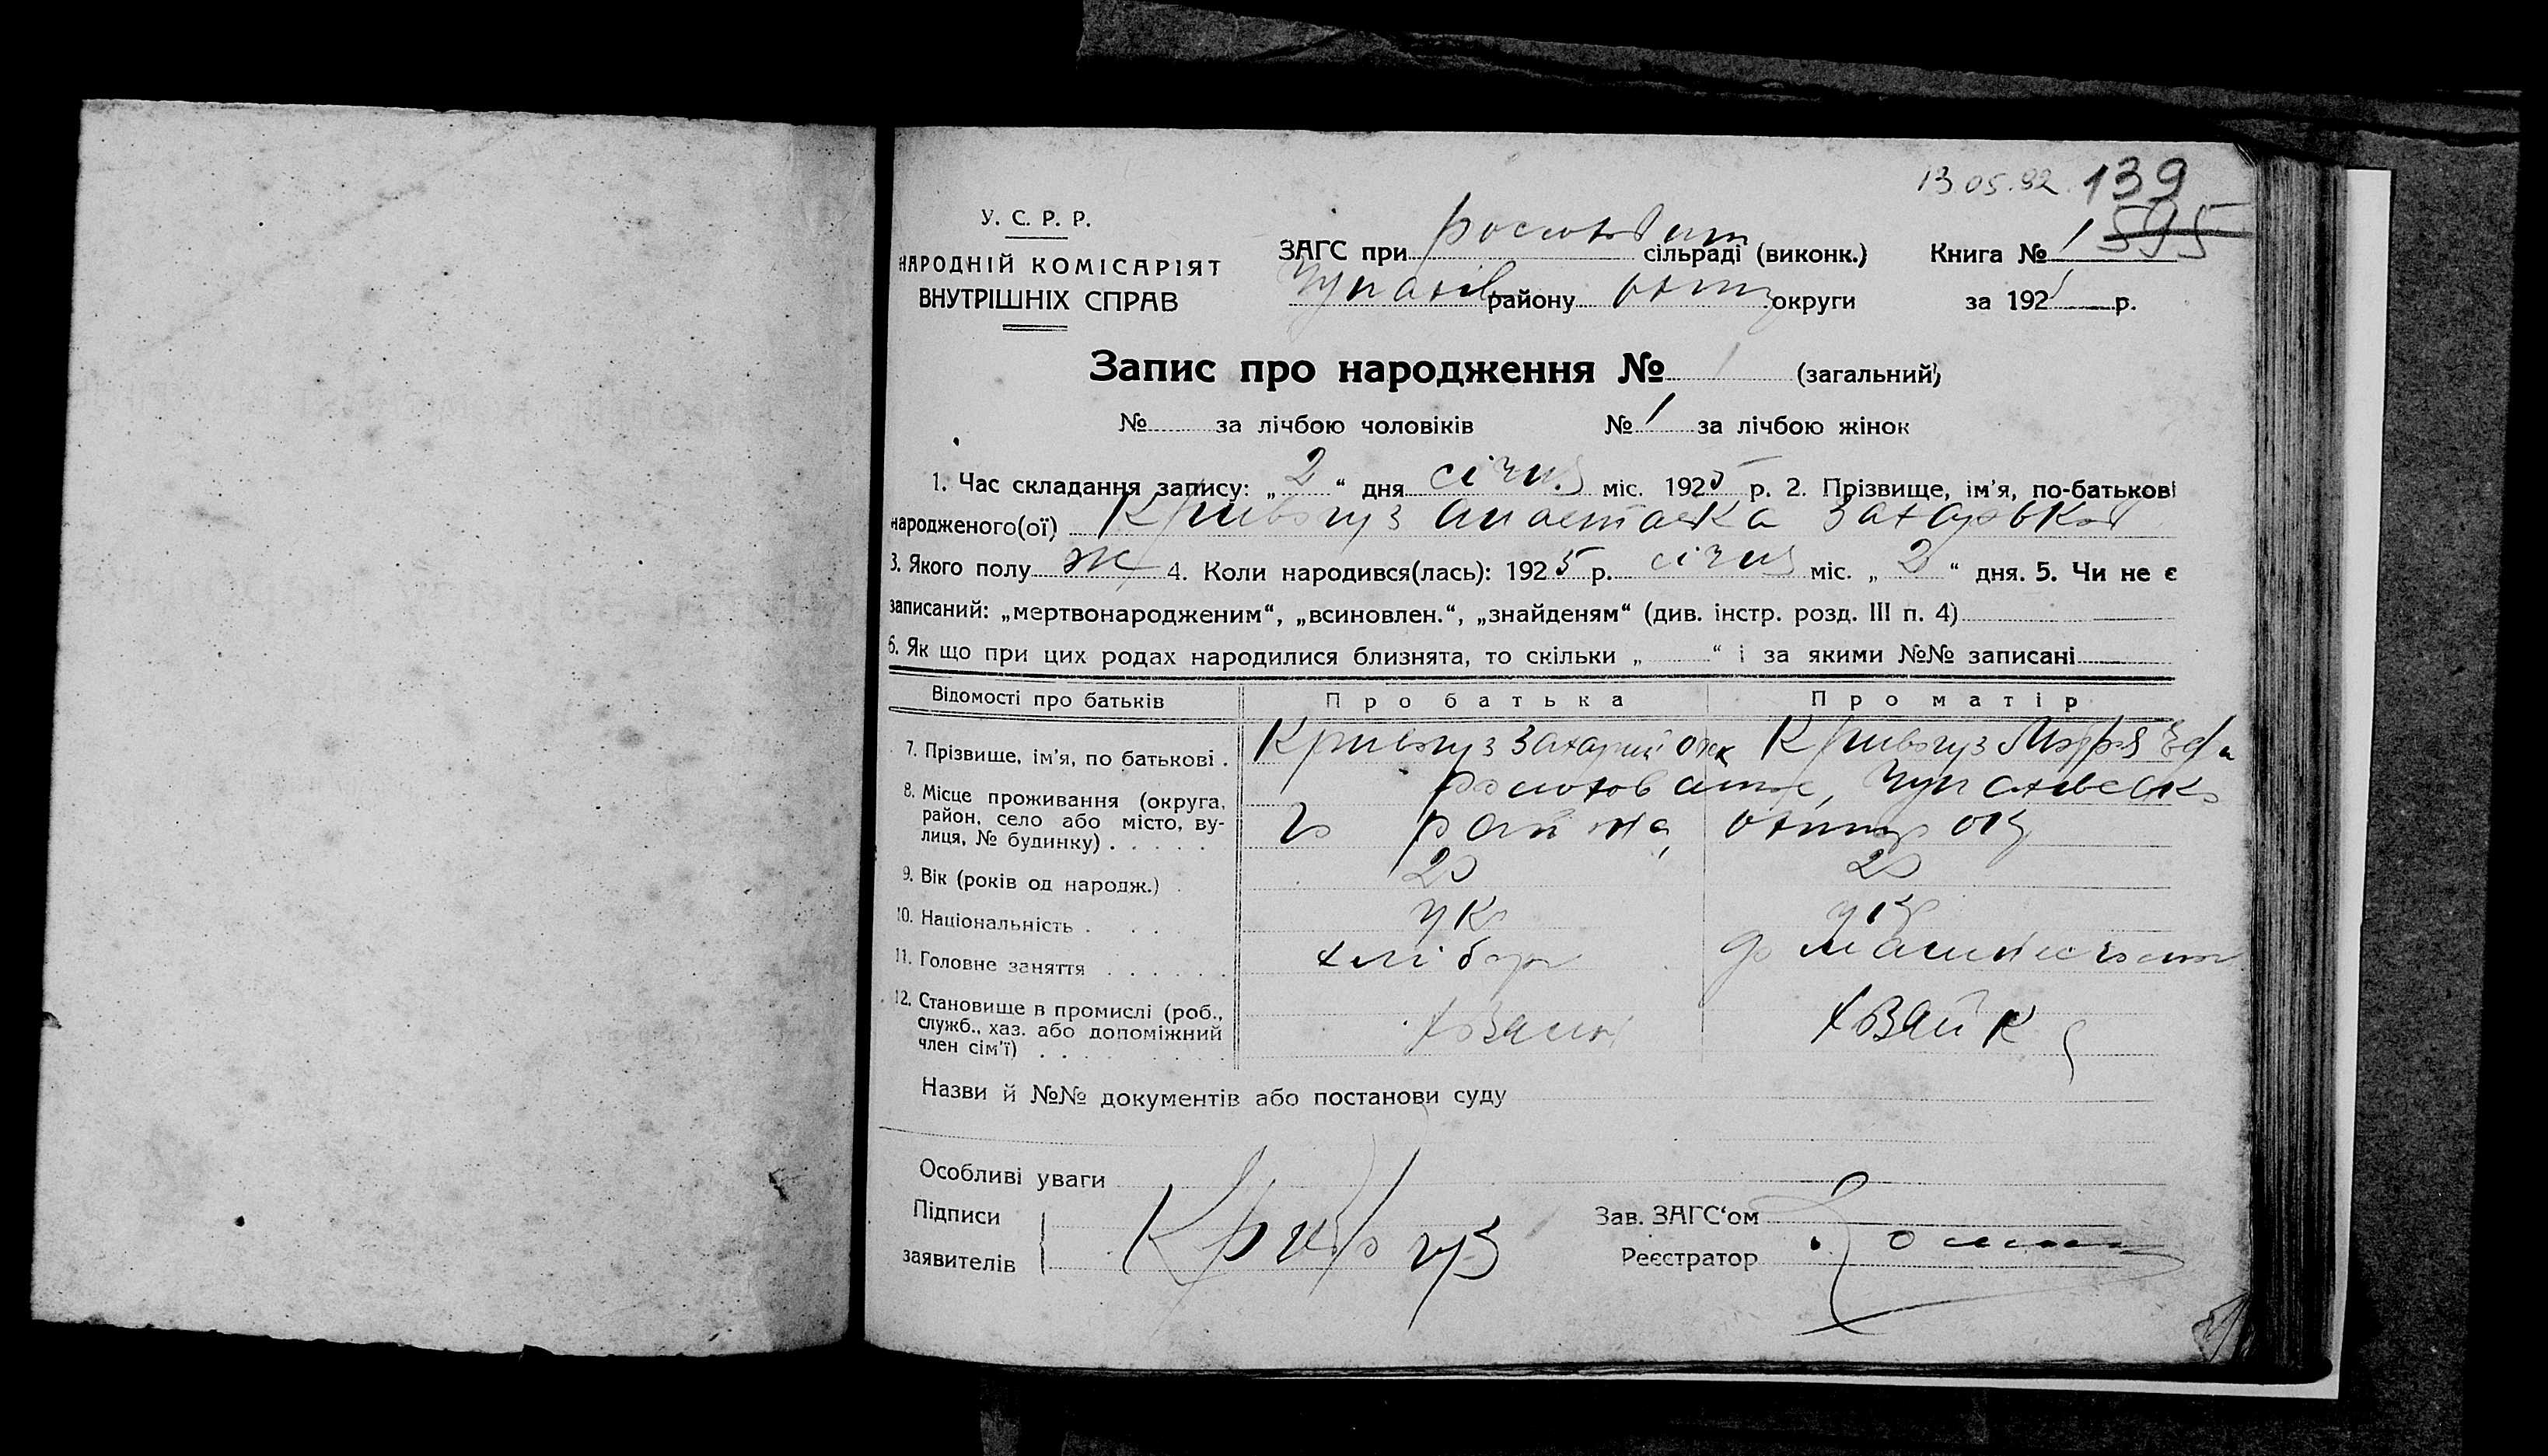 13 05.92. 139
У. С. Р. Р.
НАРОДНІЙ КОМІСАРІЯТ
ВНУТРІШНІХ СПРАВ
ЗАГС при сільраді (виконк.)
району округи
Книга № 1 595
за 192 р.
Запис про народження № 1 (загальний)
№ за лічбою чоловіків № 1 за лічбою жінок
1. Час складання запису: „2“ дня січня міс. 1925 р. 2. Прізвище, ім’я, по-батькові
народженого(ої) Кривогуз Анастаска Захарьков
3. Якого полу ж 4. Коли народився(лась): 1925 р. січня міс. „2“ дня. 5. Чи не є
записаний: „мертвонародженим“, „всиновлен.“, „знайденям“ (див. інстр. розд. III п. 4)
6. Як що при цих родах народилися близнята, то скільки „ “ і за якими №№ записані
Відомості про батьків Про батька Про матір
7. Прізвище, ім’я, по батькові . Кривогуз Захарий Кривогуз
8. Місце проживання (округа,
район, село або місто, ву-
лиця, № будинку) . . . . . го района
9. Вік (років од народж.) . 20 20
10. Національність . . . . ук ук
11. Головне заняття . . . . . . хлібор
12. Становище в промислі (роб.,
служб., хаз. або допоміжний
член сім’ї) . . . . хвяйка
Назви й №№ документів або постанови суду
Особливі уваги
Підписи
заявителів Кривогуз
Зав. ЗАГС‘ом
Реєстратор